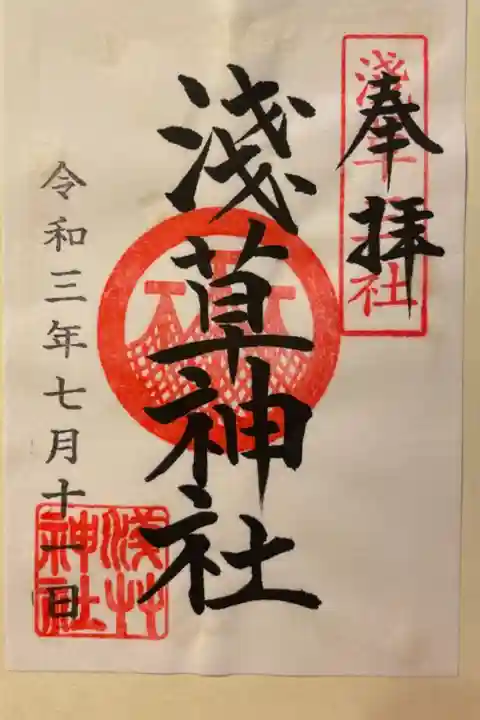 奉拝
淺草神社
淺草神社
令和三年七月十一日
淺草神社